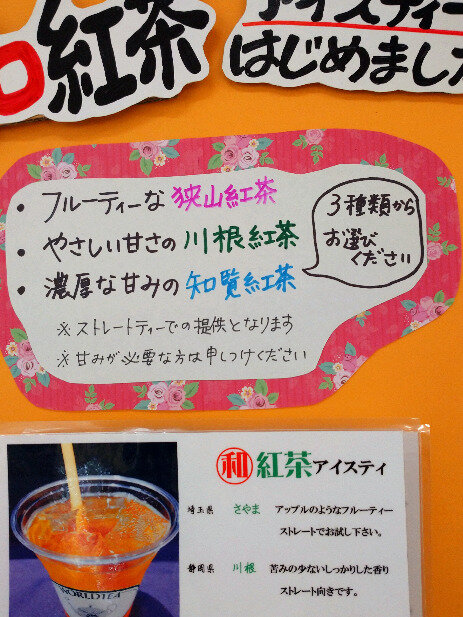 和紅茶
アイスティー
はじめました
・フルーティーな狭山紅茶
・やさしい甘さの川根紅茶
・濃厚な甘みの知覧紅茶
3種類から
お選び
ください
※ストレートティーでの提供となります
※甘みが必要な方は申しつけください
和 紅茶アイスティ
埼玉県 さやま アップルのようなフルーティー
ストレートでお試し下さい。
静岡県 川根 苦みの少ないしっかりした香り
ストレート向きです。
WORLD TEA